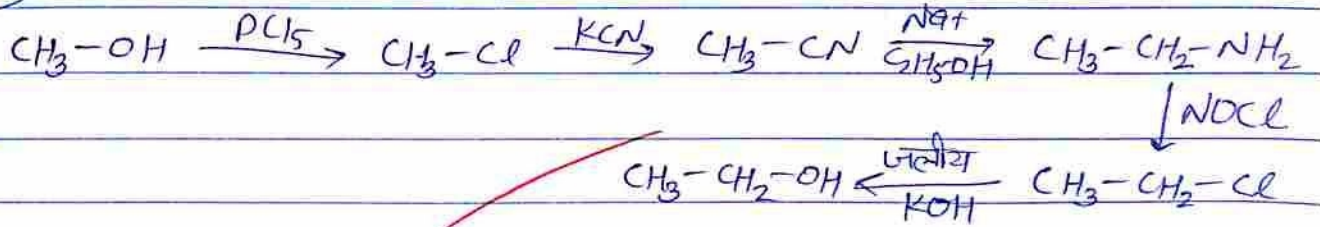 CH₃-OH —PCl₅→ CH₃-Cl —KCN→ CH₃-CN —Na+ / C₂H₅OH→ CH₃-CH₂-NH₂
↓ NOCl
CH₃-CH₂-OH ←जलीय / KOH— CH₃-CH₂-Cl